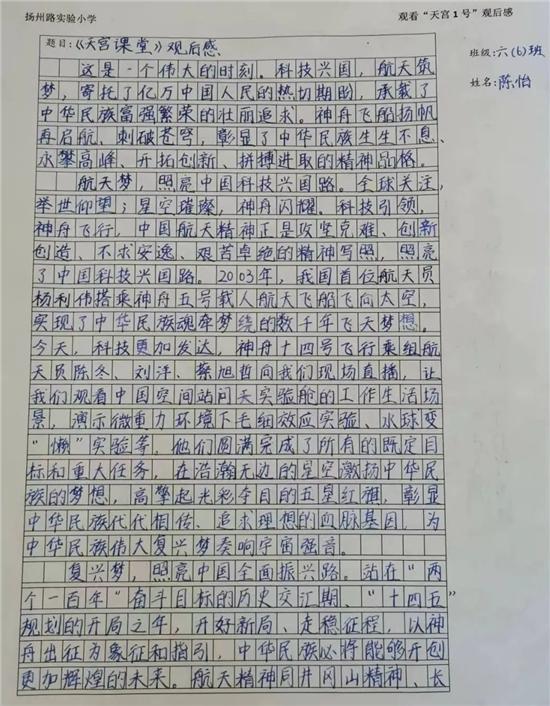 扬州路实验小学
观看“天宫1号”观后感
题目:《天宫课堂》观后感
班级:六(6)班
姓名:陈怡
这是一个伟大的时刻。科技兴国,航天筑
梦,寄托了亿万中国人民的热切期盼,承载了
中华民族富强繁荣的壮丽追求。神舟飞船扬帆
再启航、刺破苍穹,彰显了中华民族生生不息、
永攀高峰、开拓创新、拼搏进取的精神品格。
航天梦,照亮中国科技兴国路。全球关注,
举世仰望;星空璀璨,神舟闪耀。科技引领,
神舟飞行,中国航天精神正是攻坚克难、创新
创造、不求安逸、艰苦卓绝的精神写照,照亮
了中国科技兴国路。2003年,我国首位航天员
杨利伟搭乘神舟五号载人航天飞船飞向太空,
实现了中华民族魂牵梦绕的数千年飞天梦想。
今天,科技更加发达,神舟十四号飞行乘组航
天员陈冬、刘洋、蔡旭哲向我们现场直播,让
我们观看中国空间站问天实验舱的工作生活场
景,演示微重力环境下毛细效应实验、水球变
“懒”实验等,他们圆满完成了所有的既定目
标和重大任务,在浩瀚无边的星空激扬中华民
族的梦想,高擎起光彩夺目的五星红旗,彰显
中华民族代代相传、追求理想的血脉基因,为
中华民族伟大复兴梦奏响宇宙强音。
复兴梦,照亮中国全面振兴路。站在“两
个一百年”奋斗目标的历史交汇期、“十四五”
规划的开局之年,开好新局、走稳征程,以神
舟出征为象征和指引,中华民族必将能够开创
更加辉煌的未来。航天精神同井冈山精神、长